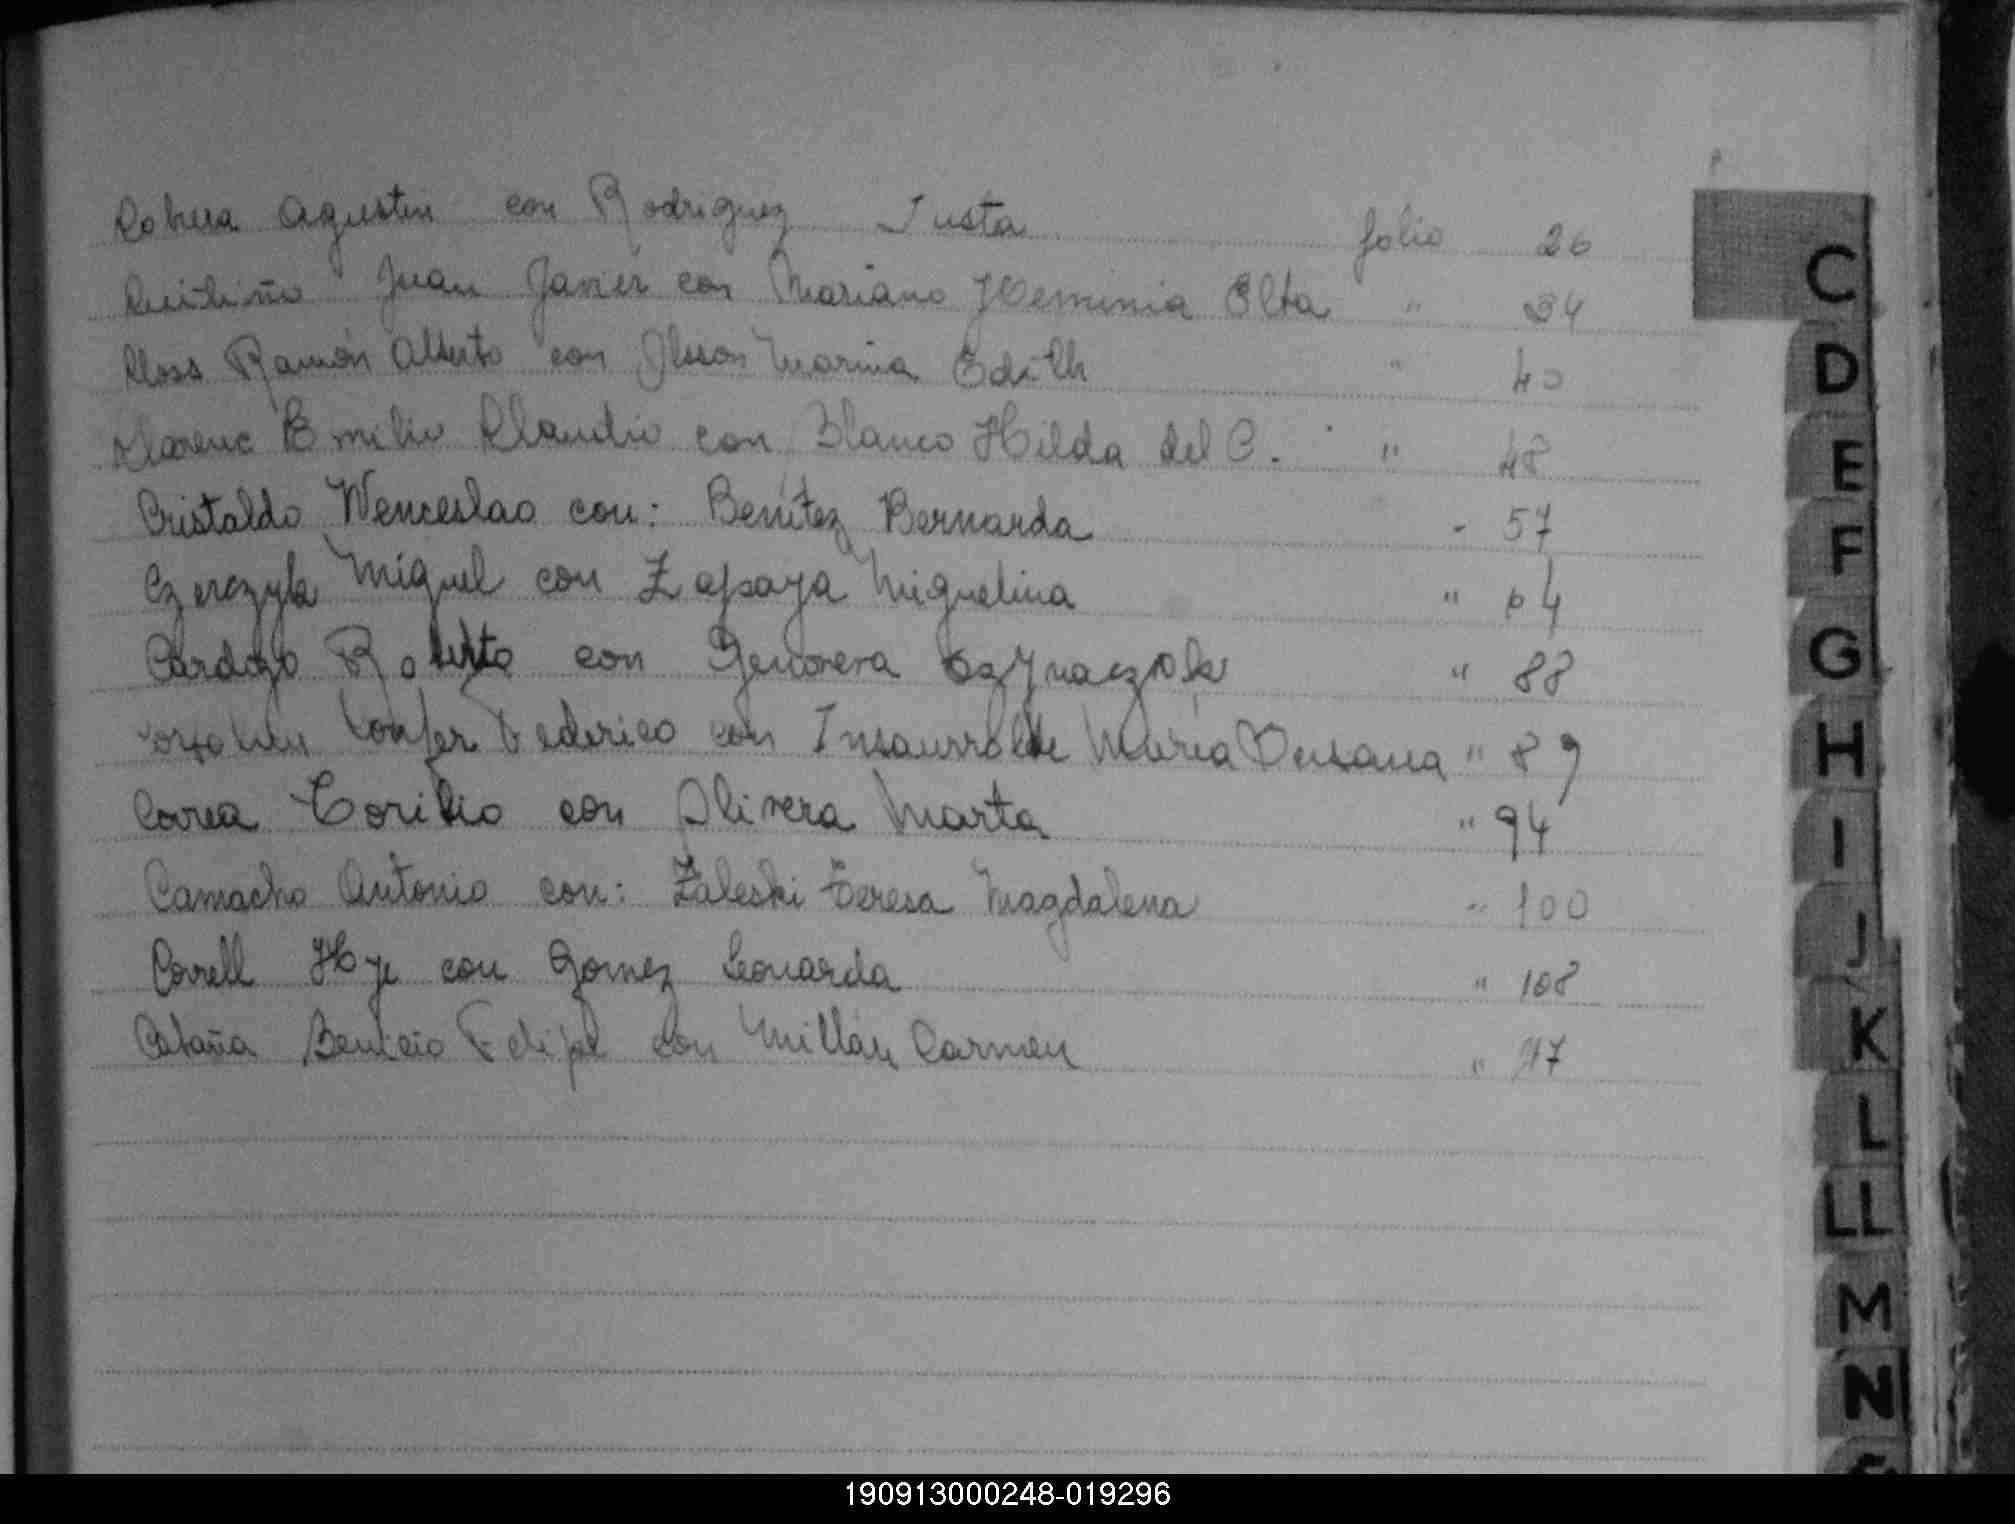 Agustin con Rodriguez Justa folio 26
Juan Javier con Mariano Herminia Elta " 34
Closs Ramón Alberto con Olsson Marina Edith " 40
Emilio Claudio con Blanco Hilda del C. " 48
Cristaldo Wenceslao con: Benitez Bernarda - 57
Czerczyk Miguel con Zapaya Miguelina " 64
Cardozo Roberto con Genovera " 88
Federico con Insaurralde Maria " 89
Correa Toribio con Olivera Marta " 94
Camacho Antonio con: Zaleski Teresa Magdalena " 100
Correll con Gomez Leonarda " 108
Cabaña Benicio Felipe con Millán Carmen " 117
C
D
E
F
G
H
I
J
K
L
LL
M
N
190913000248-019296